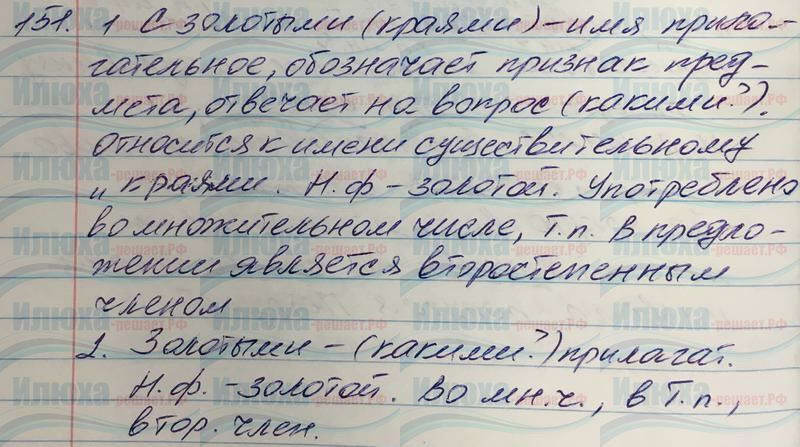 151. 1 С золотыми (краями) - имя прила-
гательное, обозначает признак пред-
мета, отвечает на вопрос (какими?).
Относится к имени существительному
„краями. Н.ф - золотой. Употреблено
во множительном числе, Т.п. В предло-
жении является второстепенным
членом
2. Золотыми - (какими?) прилагат.
Н.ф. - золотой. Во мн.ч., в Т.п.,
втор. член.
Илюха-решает.рф